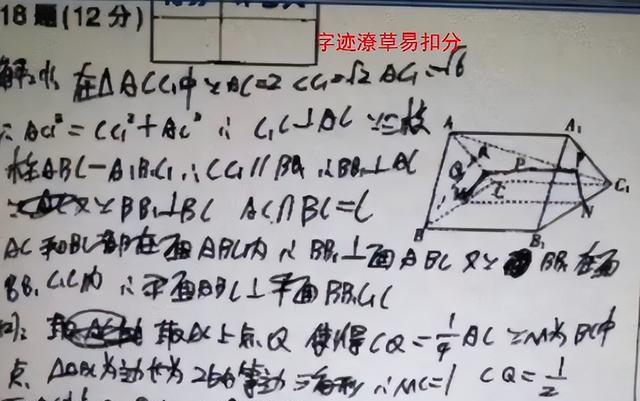 18题(12分)
字迹潦草易扣分
解: 在△ACC₁中 ∵ AC=2 CC₁=√2 AC₁=√6
∴ AC₁²=CC₁²+AC² ∴ C₁C⊥AC ∵三棱
柱ABC-A₁B₁C₁ ∴CC₁∥BB₁ ∴BB₁⊥AC
又∵BB₁⊥BC AC∩BC=C
AC和BC都在面ABC内 ∴BB₁⊥面ABC 又∵BB₁在面
BB₁C₁C内 ∴平面ABC⊥平面BB₁C₁C
取AC上点Q 使得CQ=1/4AC ∵M为BC中
点 △ABC为边长为2的等边三角形 ∴MC=1 CQ=1/2
A A₁
Q P
C C₁
M N
B B₁